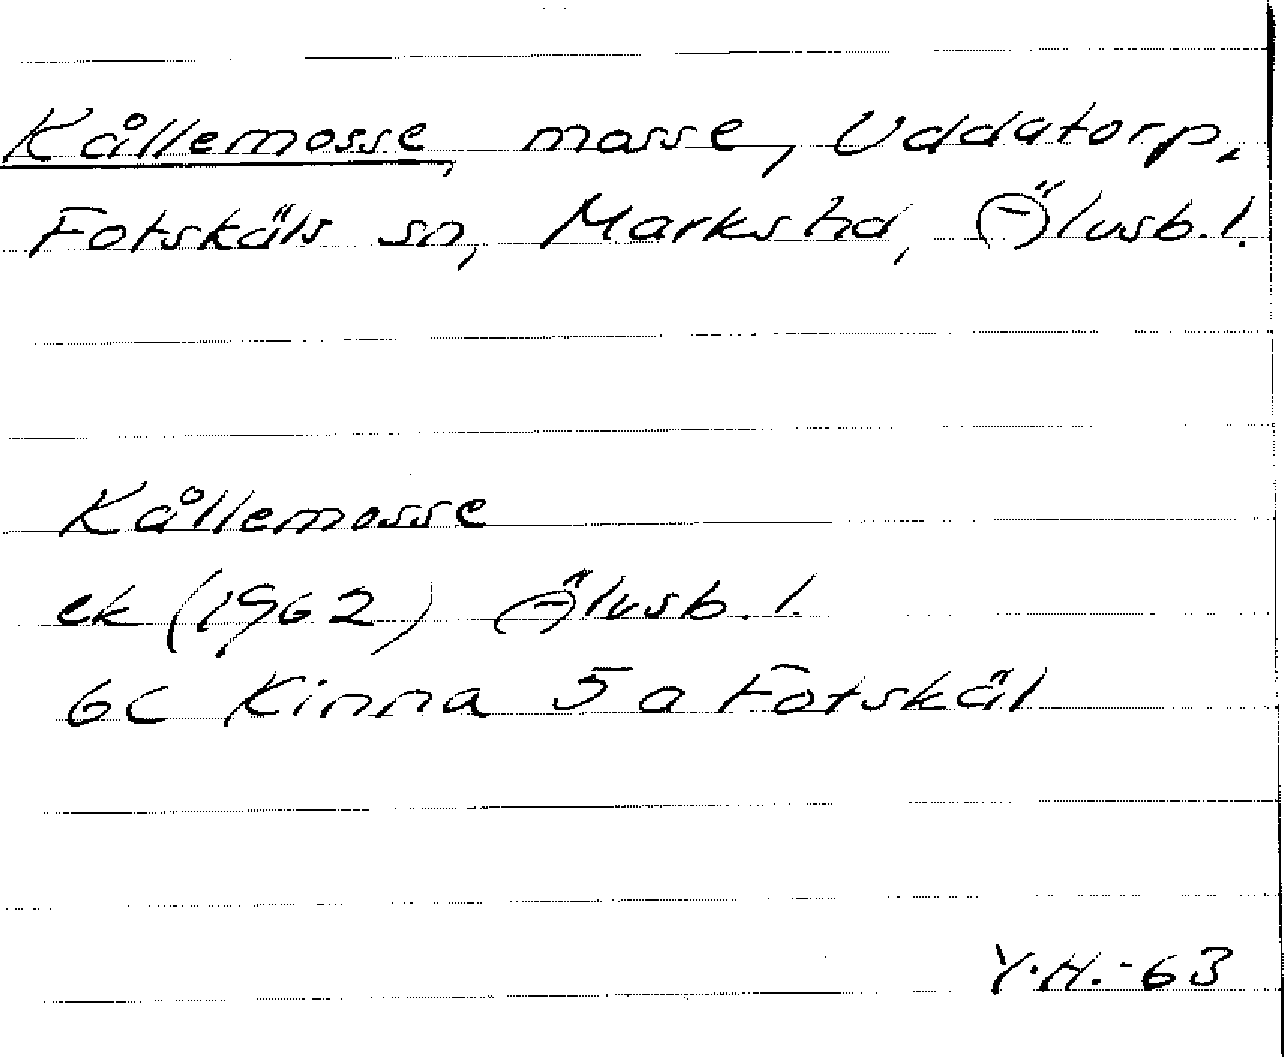 Kållemosse, mosse, Uddatorp,
Fotskäls sn, Marks hd, Älvsb. l.
Kållemosse
ek (1962) Älvsb. l.
6C Kinna 5 a Fotskäl
Y.H.-63